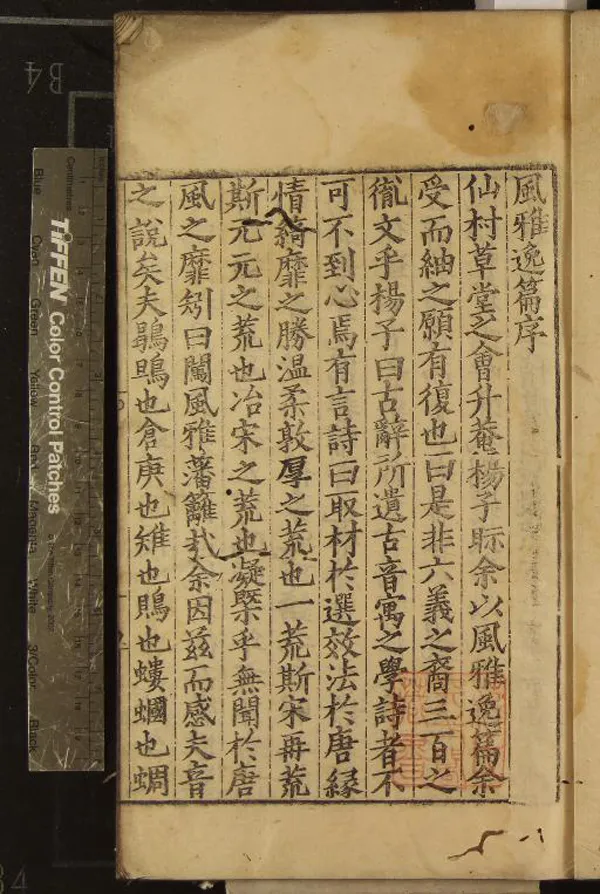 風雅逸篇序
仙村草堂之會升菴楊子眎余以風雅逸篇余
受而紬之願有復也曰是非六義之裔三百之
胤文乎楊子曰古辭所遺古音寓之學詩者不
可不到心焉有言詩曰取材於選效法於唐緣
情綺靡之勝溫柔敦厚之荒也一荒斯宋再荒
斯元元之荒也冶宋之荒也凝槩乎無聞於唐
風之靡矧曰闖風雅藩籬哉余因茲而感夫音
之說矣夫鶗鴂也倉庚也雉也鵙也螻蟈也蜩
TIFFEN Color Control Patches
Centimetres
Blue
Cyan
Green
Yellow
Red
Magenta
White
3/Color
Black
B4
B4